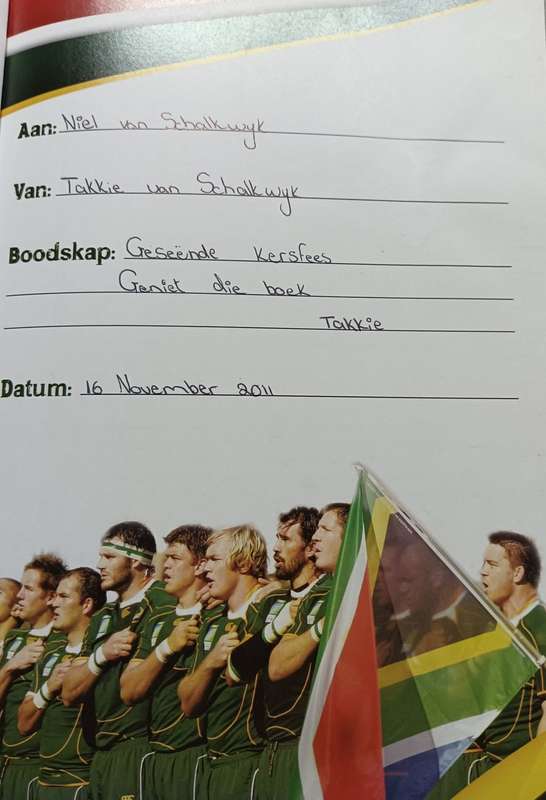 Aan: Niel van Schalkwyk
Van: Takkie van Schalkwyk
Boodskap: Geseënde Kersfees
Geniet die boek
Takkie
Datum: 16 November 2011